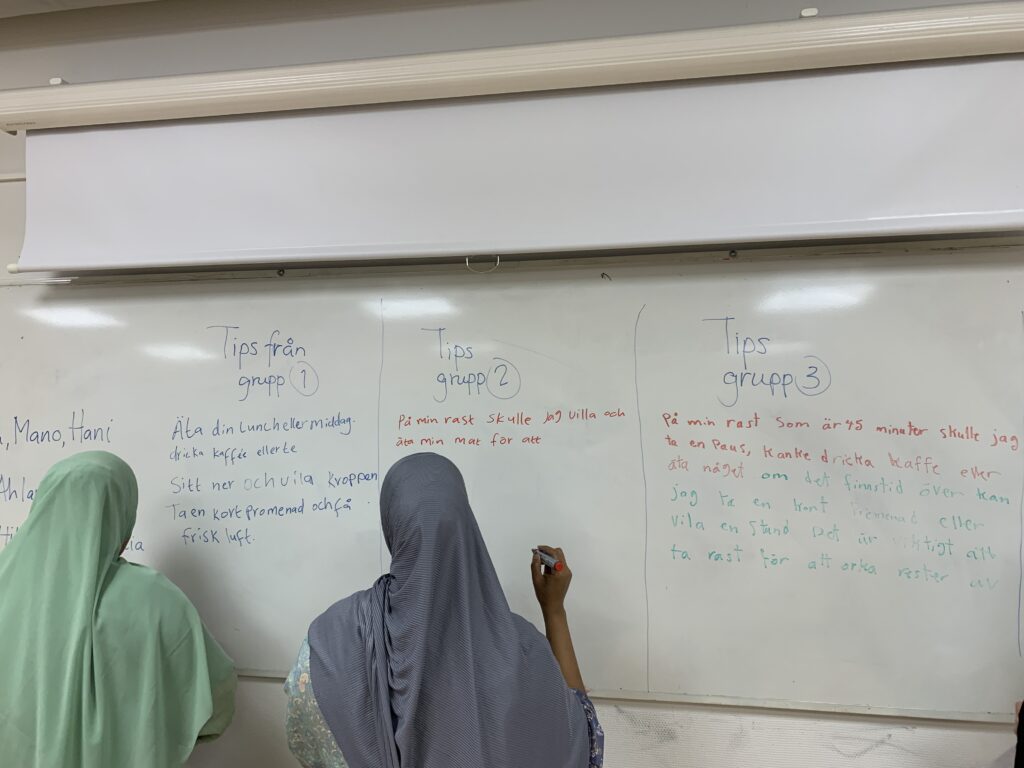 Mano, Hani
Ahla
ia
Tips från
grupp 1
Äta din Lunch eller middag.
dricka kaffe eller te
Sitt ner och vila kroppen
Ta en kort promenad och få
frisk luft.
Tips
grupp 2
På min rast skulle jag villa och
äta min mat för att
Tips
grupp 3
På min rast som är 45 minuter skulle jag
ta en Paus, kanke dricka kaffe eller
äta något om det finns tid över kan
jag ta en kort Premenad eller
vila en stund Det är viktigt att
ta rast för att orka rester av